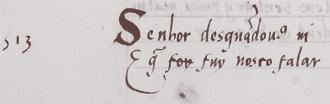 513 Senhor desquãdouꝯ ui
E q̃ for fuy uosco falar